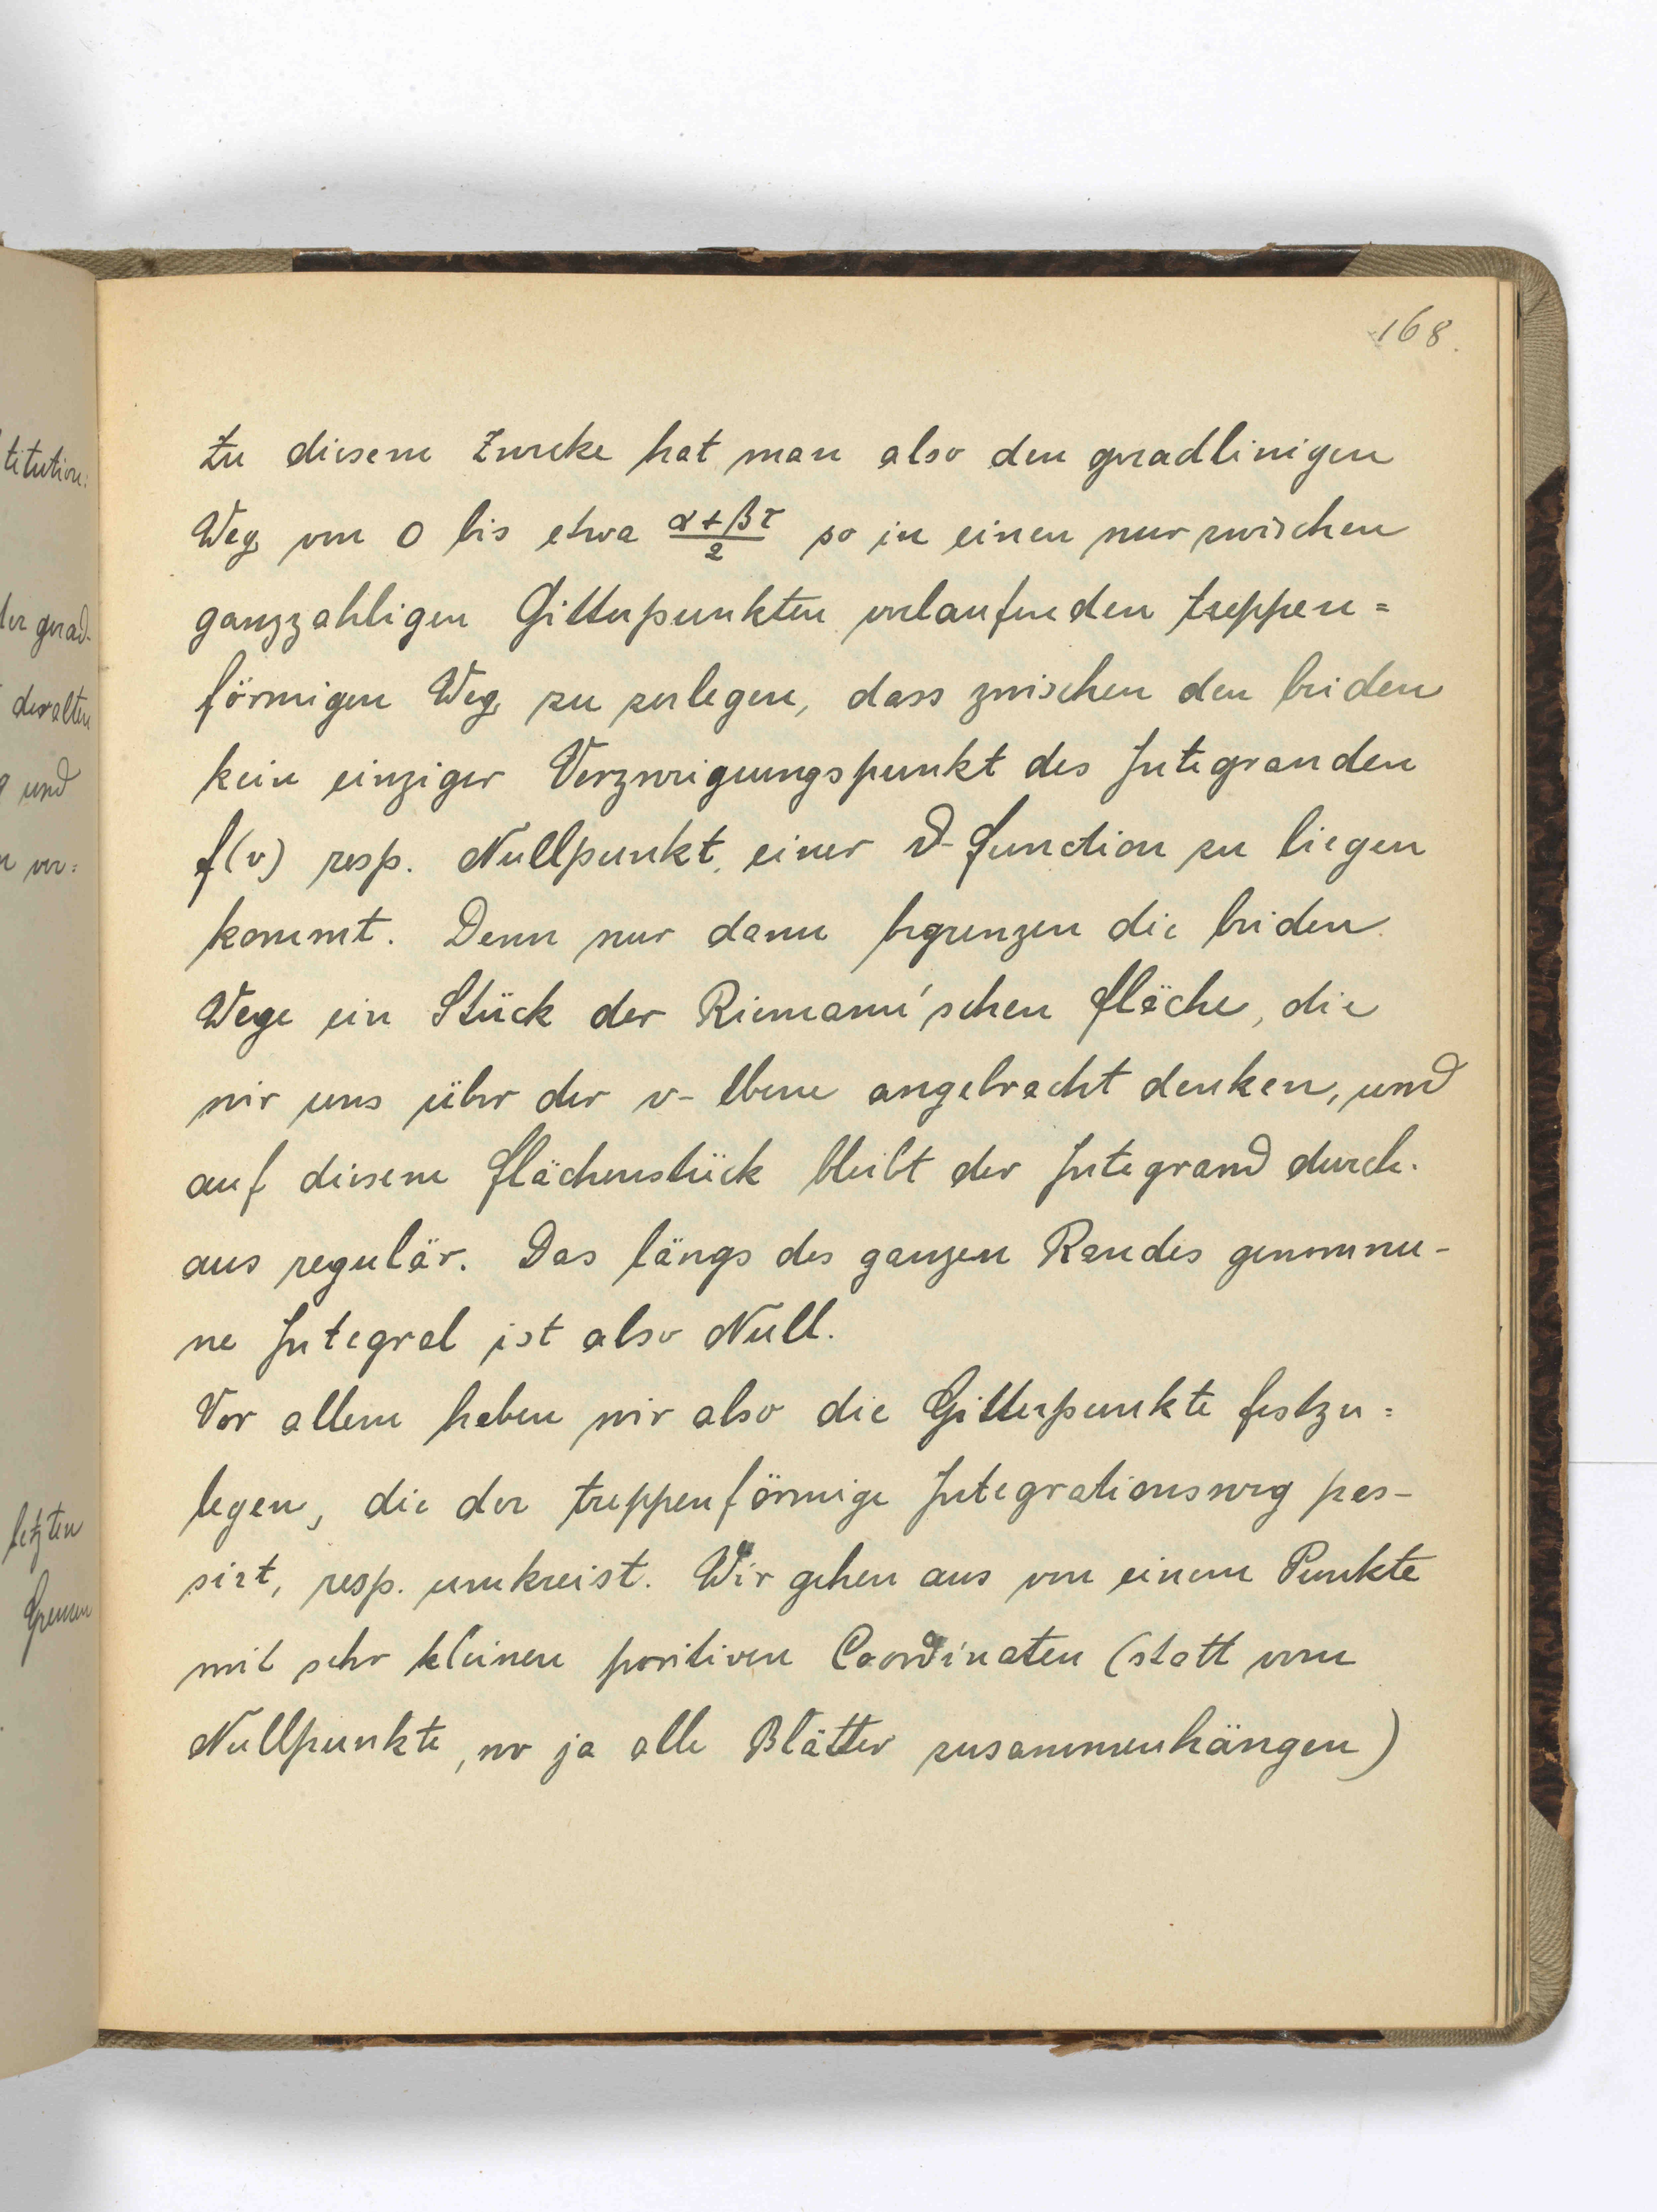 168.
titution:
der grad-
der alten
und
ver=
letzten
Zu diesem Zwecke hat man also den gradlinigen
Weg von 0 bis etwa (α+βτ)/2 so in einen nur zwischen
ganzzahligen Gitterpunkten verlaufenden treppen=
förmigen Weg zu zerlegen, dass zwischen den beiden
kein einziger Verzweigungspunkt des Integranden
f(v) resp. Nullpunkt einer ϑ-Function zu liegen
kommt. Denn nur dann begrenzen die beiden
Wege ein Stück der Riemann'schen Fläche, die
wir uns über der v-Ebene angebracht denken, und
auf diesem Flächenstück bleibt der Integrand durch-
aus regulär. Das längs des ganzen Randes genomme-
ne Integral ist also Null.
Vor allem haben wir also die Gitterpunkte festzu=
legen, die der treppenförmige Integrationsweg pas-
sirt, resp. umkreist. Wir gehen aus von einem Punkte
mit sehr kleinen positiven Coordinaten (statt vom
Nullpunkte, wo ja alle Blätter zusammenhängen)